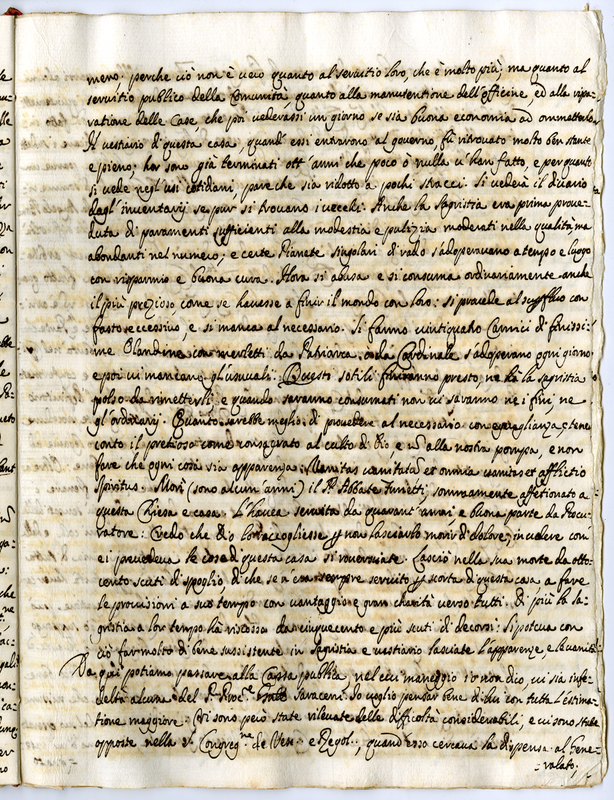 meno: perche ciò non è vero quanto al servitio loro, che è molto più; ma quanto al
servitio publico della Comunità, quanto alla manutentione dell'officine, ed alla ripa-
ratione delle Case, che poi vederassi un giorno se sia buona economia ad ommetterla.
Il vestiario di questa casa, quand' essi entrarono al governo, fù ritrovato molto ben stante
e pieno; hor sono già terminati ott' anni che poco ò nulla v' han fatto, e per quanto
si vede negl' usi cotidiani, pare che sia ridotto a pochi stracci. Si vederà il divario
dagl' inventarij se pur si trovano i vecchi. Anche la sagristia era prima prove-
duta di paramenti sufficienti alla modestia e pulizia moderati nella qualità, ma
abondanti nel numero; e certe Pianete singolari di vado s' adoperavano a tempo e luogo
con risparmio e buona cura. Hora si abusa e si consuma ordinariamente anche
il più prezioso, come se havesse a finir il mondo con loro: si procede al superfluo con
fasto eccessivo, e si manca al necessario. Si fanno vintiquatro Camici di finissi-
me Olandine con merletti da Patriarca o da Cardinale s' adoperano ogni giorno
e poi vi mancano gl' usuali. Questi sotili finiranno presto, ne hà la sagristia
polso da rimetterli: e quando saranno consumati non vi saranno ne i fini, ne
gl' ordinarij. Quanto sarebbe meglio di provedere al necessario con eguaglianza, e tener
conto il pretioso come consagrato al culto di Dio e nō alla nostra pompa, e non
fare che ogni cosa sia apparenza: Vanitas vanitatū et omnia vanitas et afflictio
spiritus. Morì (sono alcuni anni) il Pr. Abbate Funetti, sommamente affetionato a
questa Chiesa e casa. L' havea servita da quarant' anni, e buona parte da Procu-
ratore: credo che Dio lo raccogliesse p non lasciarlo morir di dolore, in veder con-
e i prevedeva le cose di questa casa si roversciate. Lasciò nella sua morte da otto-
cento scuti di spoglio, di che se n' era sempre servito p scorta di questa casa a fare
le provisioni a suo tempo con vantaggio e gran charità verso tutti. Di più la sa-
gristia a lor tempo hà riscosso da cinquecento e più scuti di decorsi: Si poteva con
ciò far molto di bene sussistente in sagristia e vestiario lasciate l' apparenze, e la vanità.
Da qui potiamo passare alla Cassa publica, nel cui maneggio io non dico, vi sia infe-
deltà alcuna del Pr. Proc.re Saraceni. Io voglio pensar bene di lui con tutta l' estima-
tione maggiore. Vi sono però state rilevate delle difficoltà considerabili; e vi sono state
opposte nella S. Congreg.ne de Vesc. e Regol., quand' esso cercava la dispensa al Gene-
ralato;